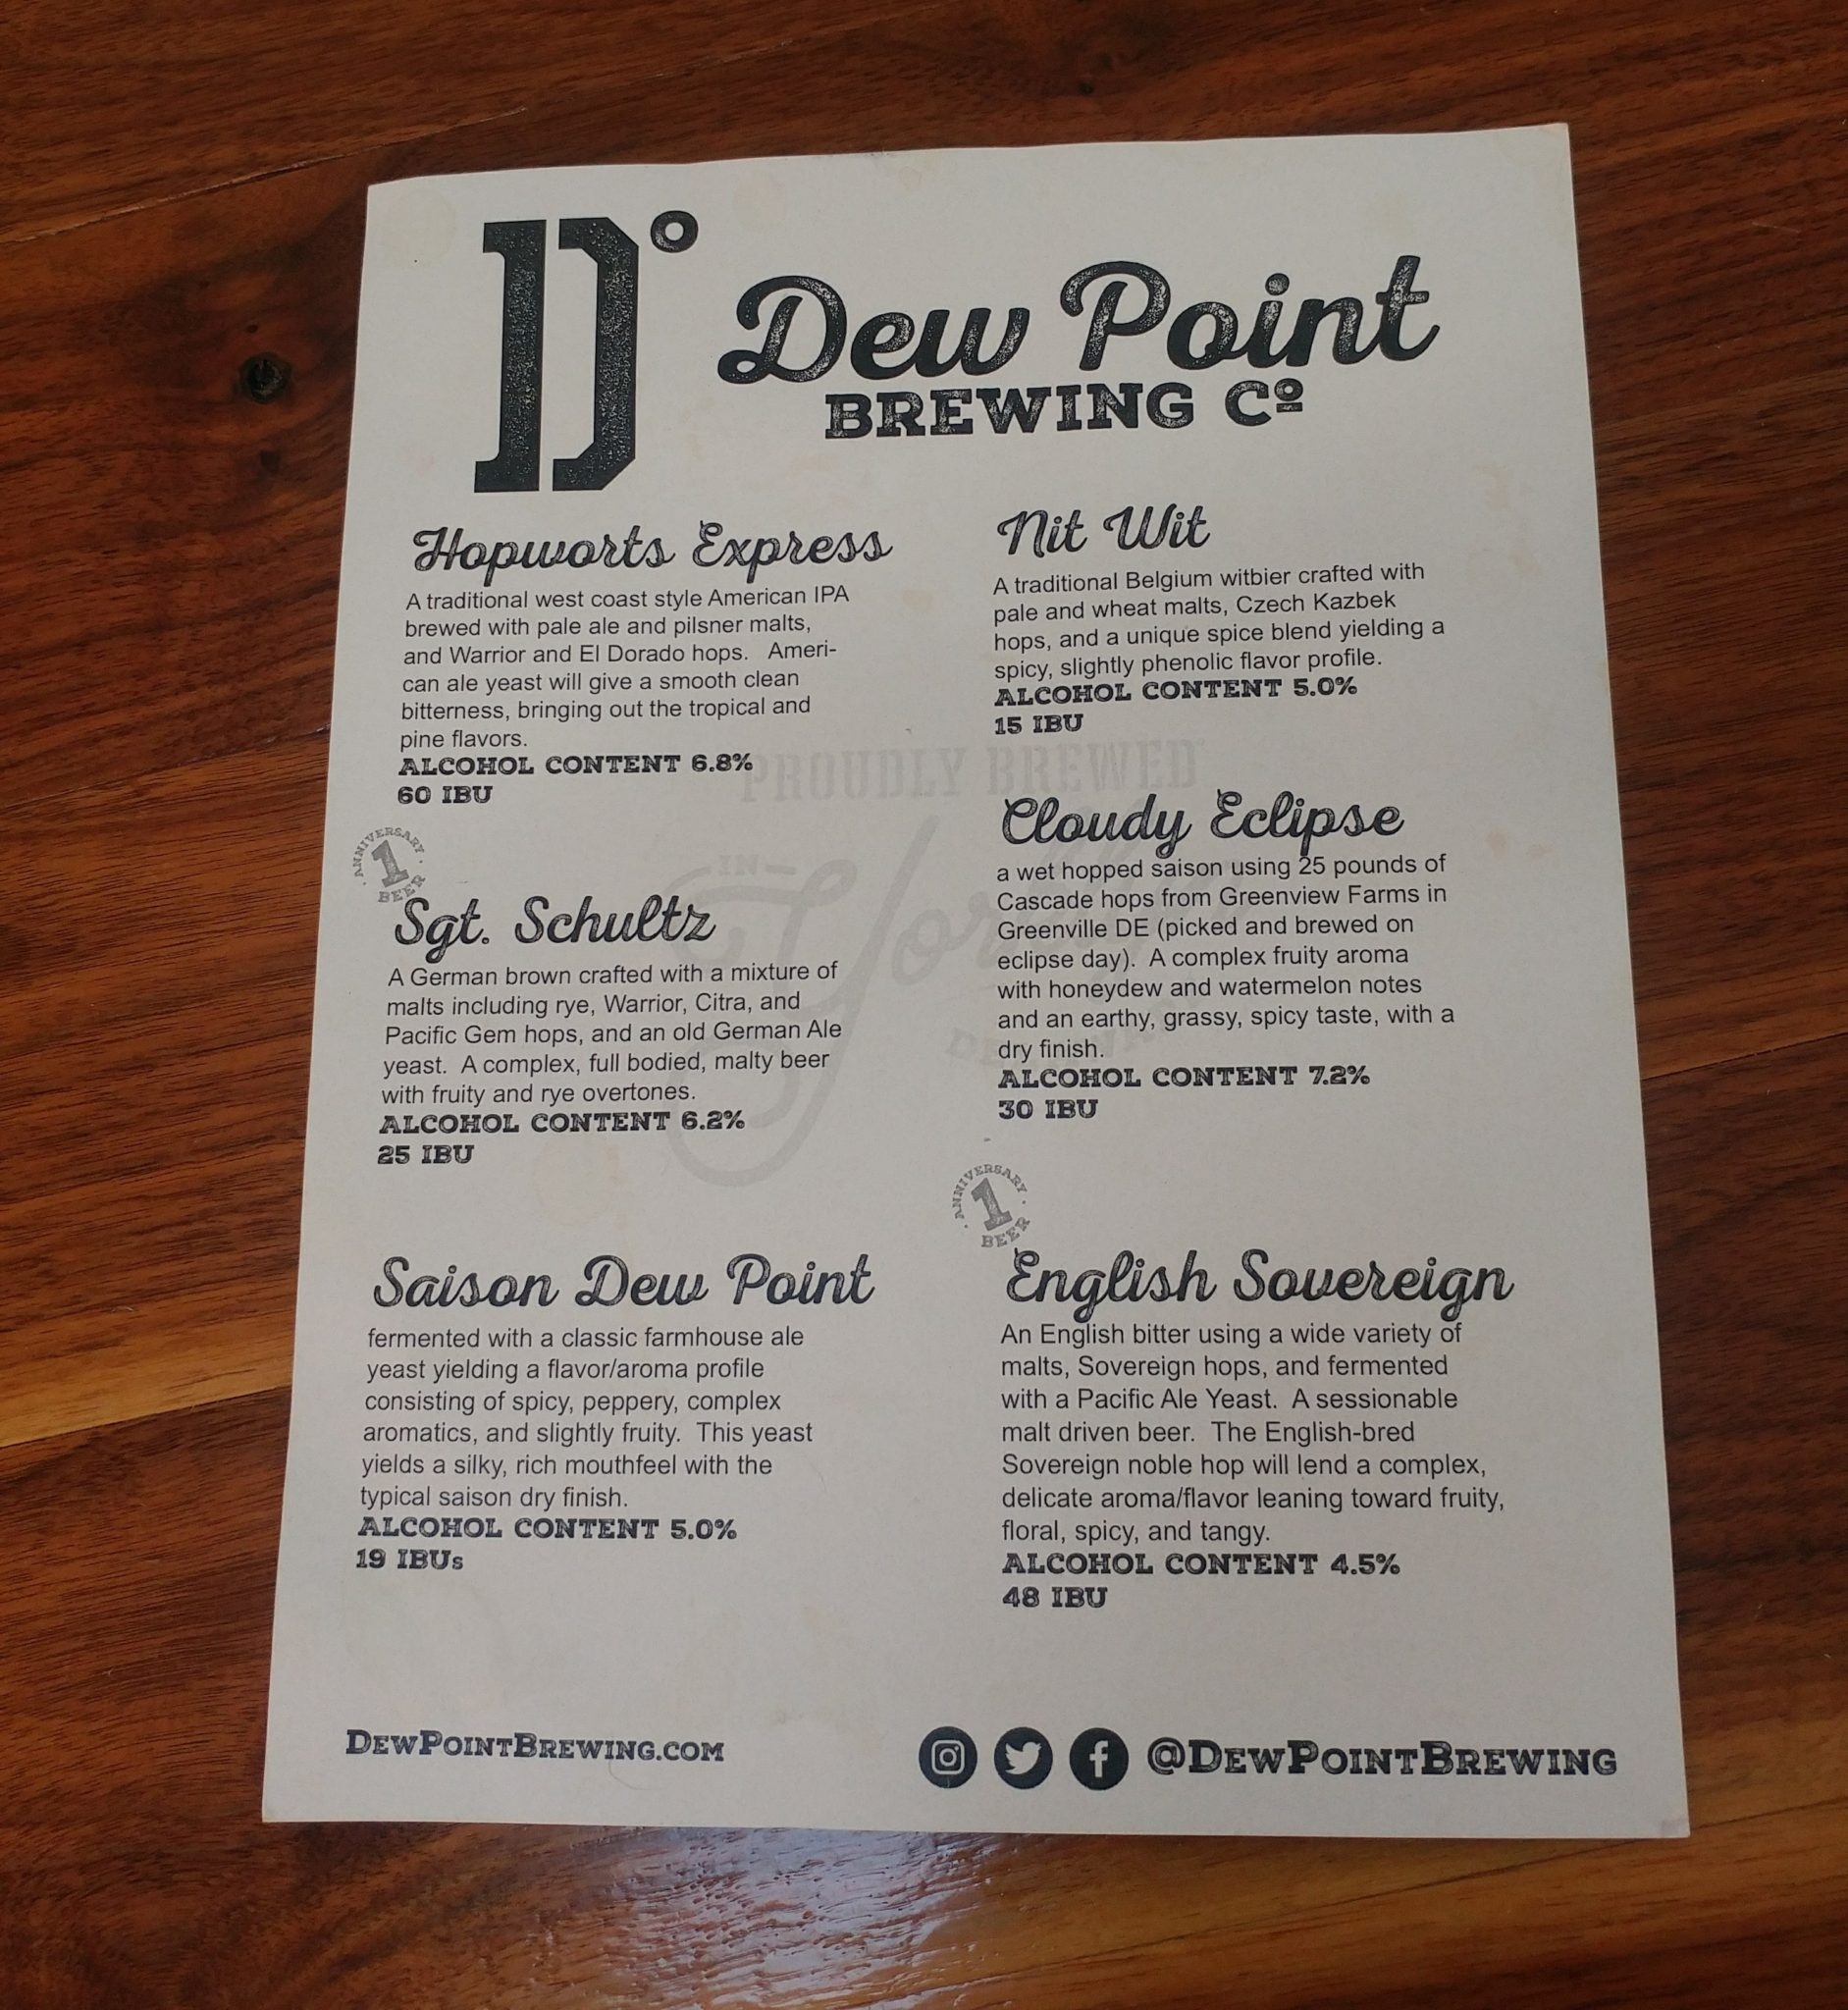 D°
Dew Point
BREWING Cº
Hopworts Express
A traditional west coast style American IPA
brewed with pale ale and pilsner malts,
and Warrior and El Dorado hops. Ameri-
can ale yeast will give a smooth clean
bitterness, bringing out the tropical and
pine flavors.
ALCOHOL CONTENT 6.8%
60 IBU
ANNIVERSARY
1
BEER
Sgt. Schultz
A German brown crafted with a mixture of
malts including rye, Warrior, Citra, and
Pacific Gem hops, and an old German Ale
yeast. A complex, full bodied, malty beer
with fruity and rye overtones.
ALCOHOL CONTENT 6.2%
25 IBU
Saison Dew Point
fermented with a classic farmhouse ale
yeast yielding a flavor/aroma profile
consisting of spicy, peppery, complex
aromatics, and slightly fruity. This yeast
yields a silky, rich mouthfeel with the
typical saison dry finish.
ALCOHOL CONTENT 5.0%
19 IBUs
Nit Wit
A traditional Belgium witbier crafted with
pale and wheat malts, Czech Kazbek
hops, and a unique spice blend yielding a
spicy, slightly phenolic flavor profile.
ALCOHOL CONTENT 5.0%
15 IBU
Cloudy Eclipse
a wet hopped saison using 25 pounds of
Cascade hops from Greenview Farms in
Greenville DE (picked and brewed on
eclipse day). A complex fruity aroma
with honeydew and watermelon notes
and an earthy, grassy, spicy taste, with a
dry finish.
ALCOHOL CONTENT 7.2%
30 IBU
ANNIVERSARY
1
BEER
English Sovereign
An English bitter using a wide variety of
malts, Sovereign hops, and fermented
with a Pacific Ale Yeast. A sessionable
malt driven beer. The English-bred
Sovereign noble hop will lend a complex,
delicate aroma/flavor leaning toward fruity,
floral, spicy, and tangy.
ALCOHOL CONTENT 4.5%
48 IBU
PROUDLY BREWED
IN
DEWPOINTBREWING.COM
@DEWPOINTBREWING